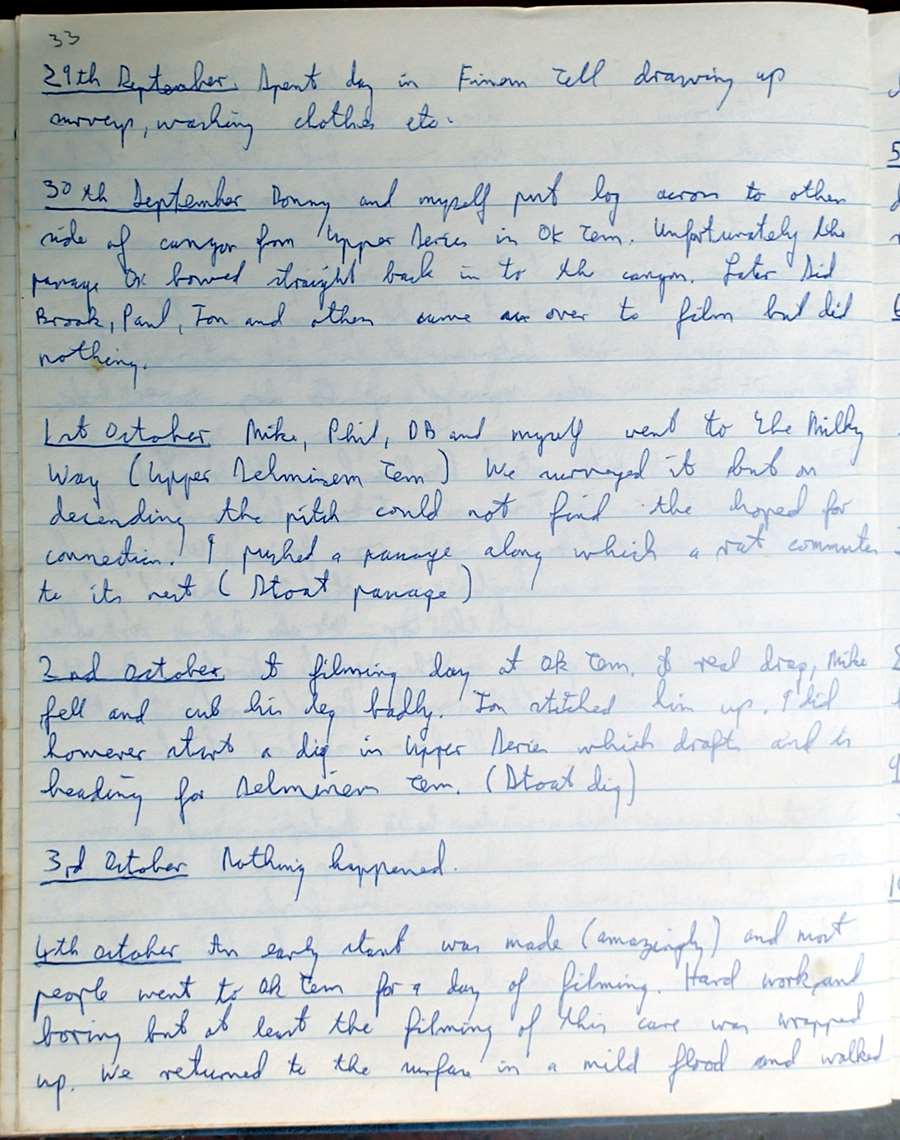 33
29th September. Spent day in Finim Tell drawing up
surveys, washing clothes etc.
30th September Donny and myself put log across to other
side of canyon from Upper Series in Ok Tem. Unfortunately the
passage bowed straight back in to the canyon. Later Sid
Brook, Paul, Jon and others came over to film but did
nothing.
1st October. Mike, Phil, DB and myself went to the Milky
Way (Upper Selminem Tem) We surveyed it but on
decending the pitch could not find the hoped for
connection. I pushed a passage along which a rat commutes
to its nest (Stoat passage)
2nd October. A filming day at Ok Tem. A real drag, Mike
fell and cut his leg badly. Jon stitched him up. I did
however start a dig in Upper Series which drafts and is
heading for Selminem Tem. (Stoat dig)
3rd October Nothing happened.
4th October An early start was made (amazingly) and most
people went to Ok Tem for a day of filming. Hard work and
boring but at least the filming of this cave was wrapped
up. We returned to the surface in a mild flood and walked
5